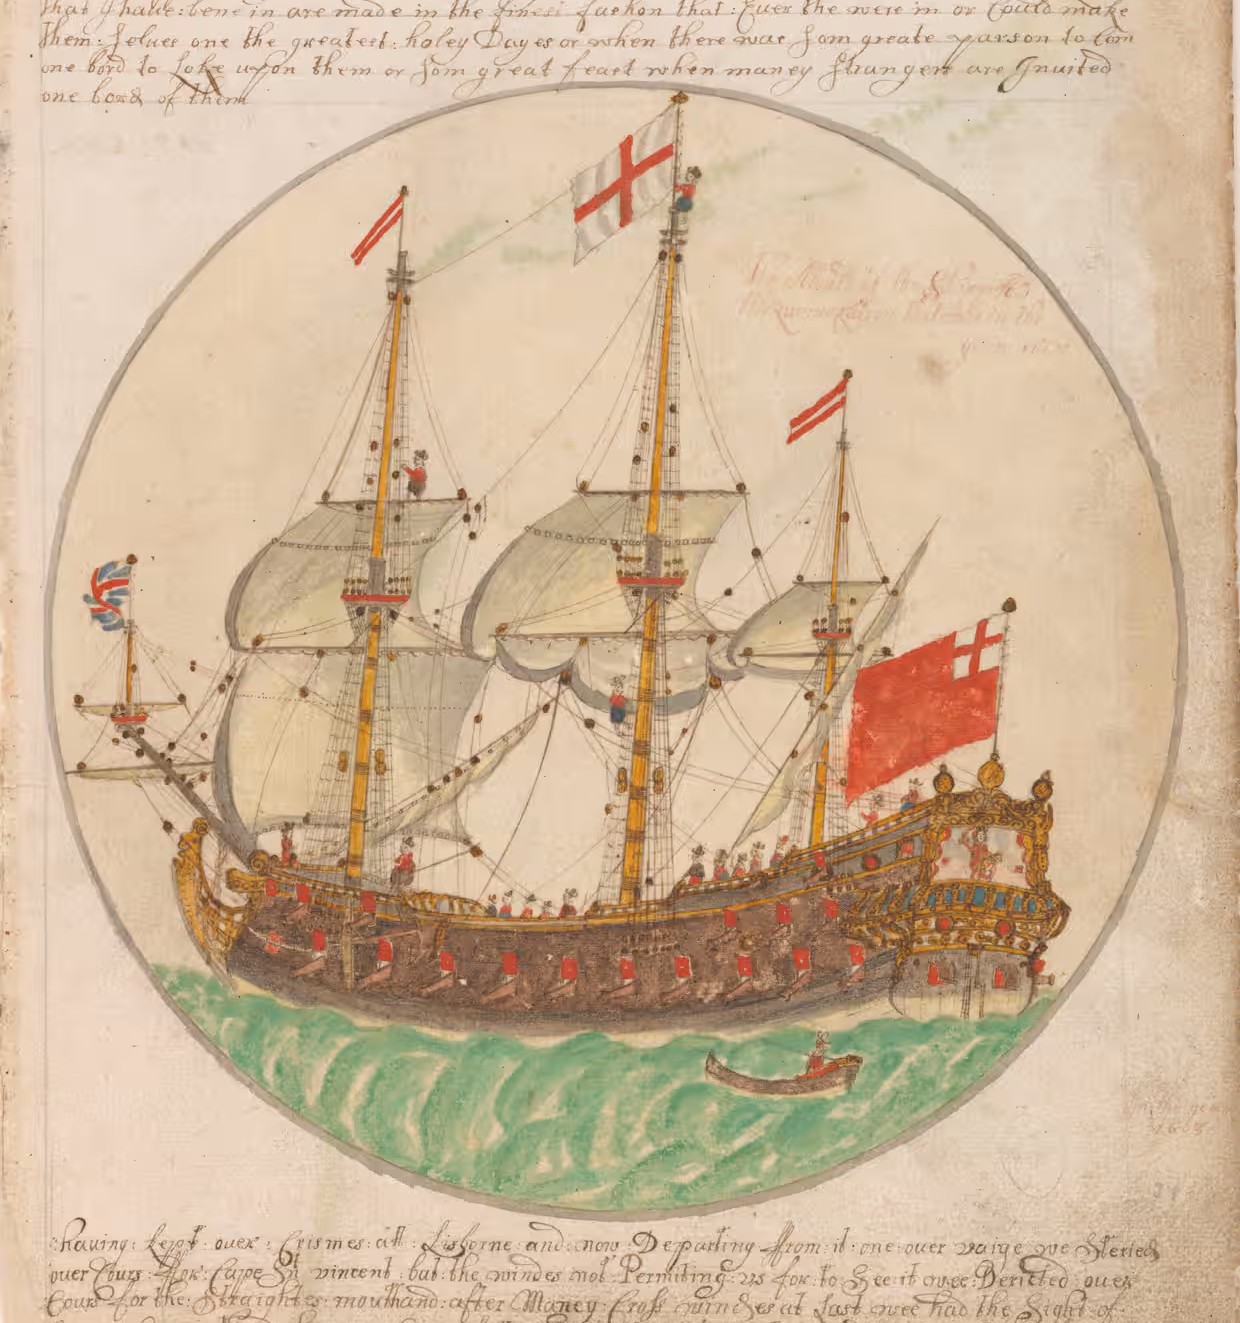 that I haue: bene in are made in the finest fashon that: Euer the were in or Could make
them: selues one the greatest: holey Dayes or when there was som greate parson to Com
one bord to loke upon them or som great feast when maney strangers are Inuited
one bord of them
having: kept: over: Crismes: att: Lisborne: and: now: Departing ffrom: it: one: over vaige we steried
over Cours: ffor: Cape Sn vincent: but: the windes not: Permiting: us for: to See it wee: Dericted over
Cours for the: Straightes: mouth and: after Maney: Cross windes at Last wee had the Sight of